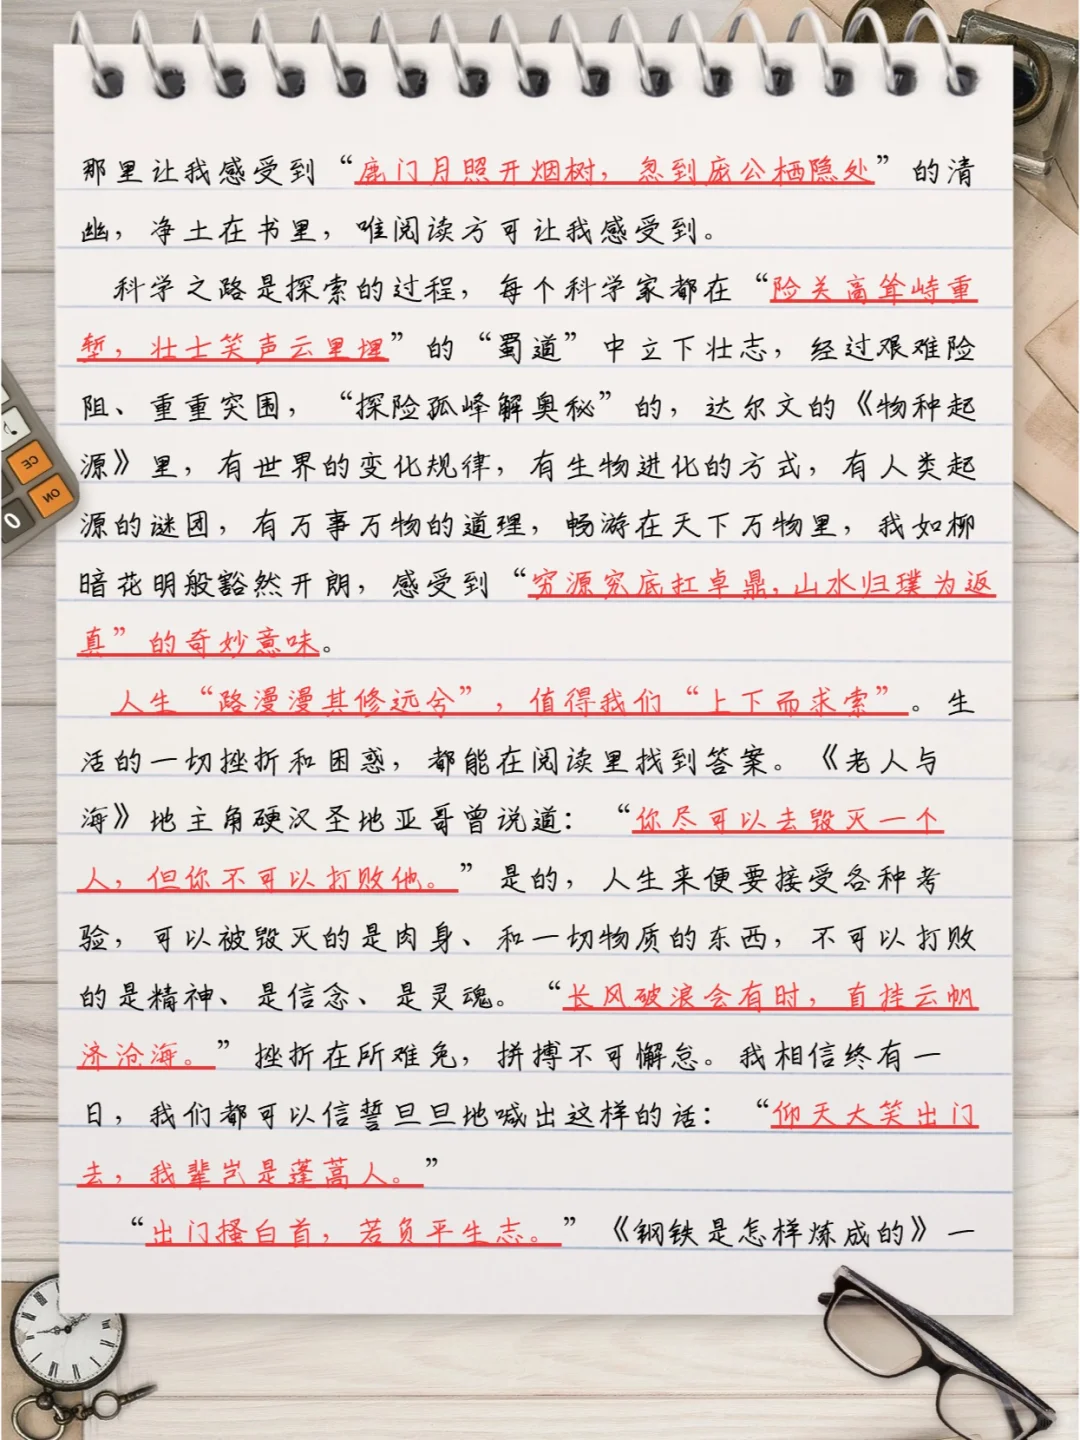 那里让我感受到“鹿门月照开烟树，忽到庞公栖隐处”的清
幽，净土在书里，唯阅读方可让我感受到。
科学之路是探索的过程，每个科学家都在“险关高耸峙重
堑，壮士笑声云里埋”的“蜀道”中立下壮志，经过艰难险
阻、重重突围，“探险孤峰解奥秘”的，达尔文的《物种起
源》里，有世界的变化规律，有生物进化的方式，有人类起
源的谜团，有万事万物的道理，畅游在天下万物里，我如柳
暗花明般豁然开朗，感受到“穷源究底扛卓鼎，山水归璞为返
真”的奇妙意味。
人生“路漫漫其修远兮”，值得我们“上下而求索”。生
活的一切挫折和困惑，都能在阅读里找到答案。《老人与
海》地主角硬汉圣地亚哥曾说道：“你尽可以去毁灭一个
人，但你不可以打败他。”是的，人生来便要接受各种考
验，可以被毁灭的是肉身、和一切物质的东西，不可以打败
的是精神、是信念、是灵魂。“长风破浪会有时，直挂云帆
济沧海。”挫折在所难免，拼搏不可懈怠。我相信终有一
日，我们都可以信誓旦旦地喊出这样的话：“仰天大笑出门
去，我辈岂是蓬蒿人。”
“出门搔白首，若负平生志。”《钢铁是怎样炼成的》一
CE
ON
0